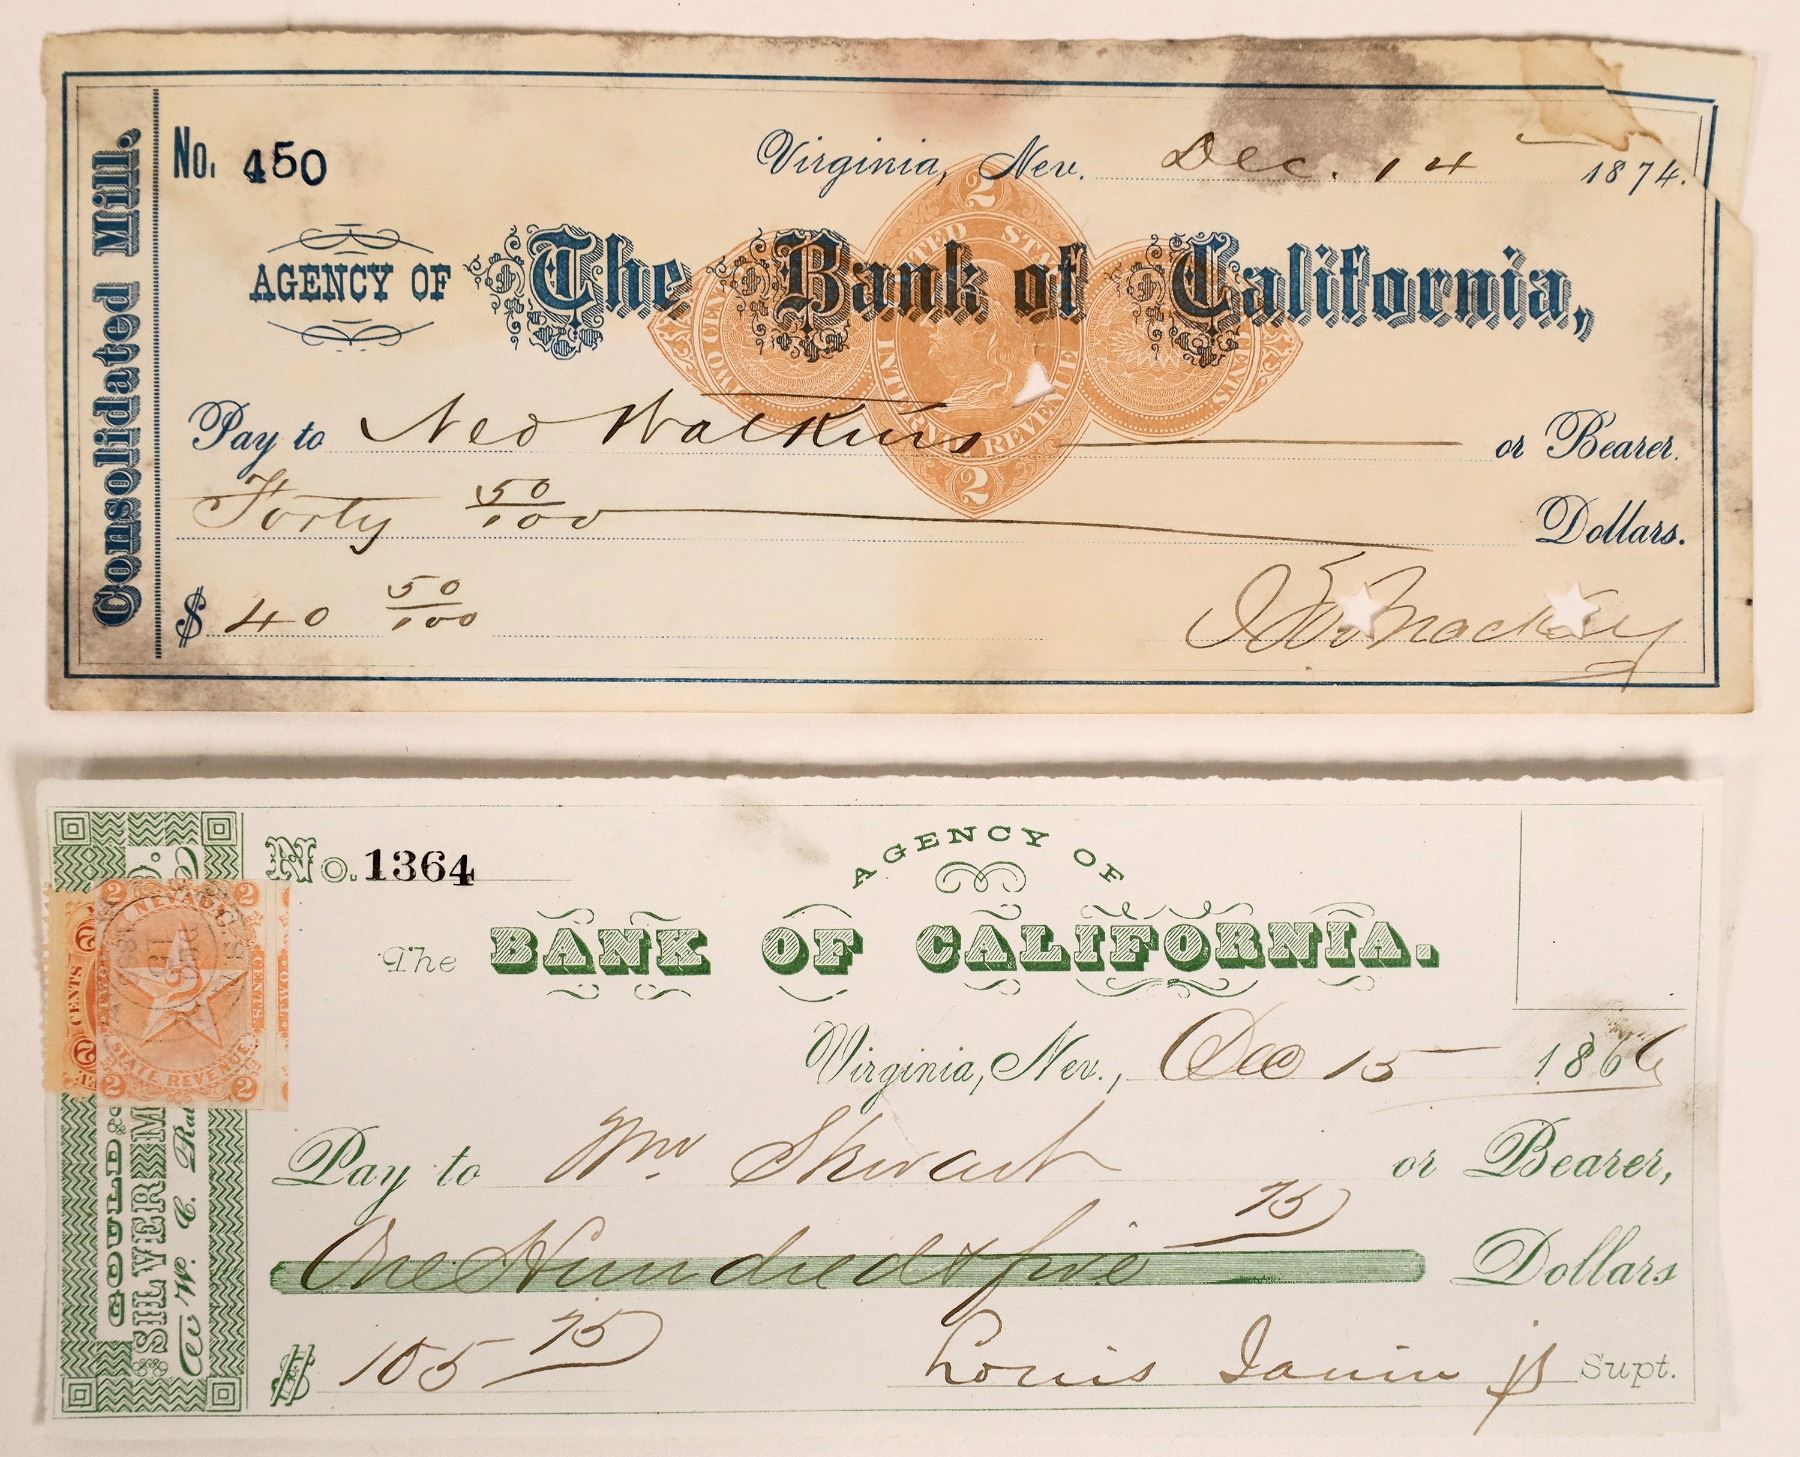 Consolidated Mill.
No. 450
Virginia, Nev. Dec. 14 1874.
AGENCY OF The Bank of California,
UNITED STATES
INTERNAL REVENUE
TWO CENTS
2
2
Pay to Ned Walkins or Bearer.
Forty 50/100 Dollars.
$ 40 50/100
Mackey
No. 1364
AGENCY OF
The BANK OF CALIFORNIA.
Virginia, Nev., Dec 15 1866
Pay to Mr Stewart or Bearer,
One Hundred & five 75 Dollars
$ 105 75
Louis Janin jr Supt.
GOULD
SILVER M
W. C.
2 NEVADA 2
CENTS
STATE REVENUE
2 2
2 CENTS 2